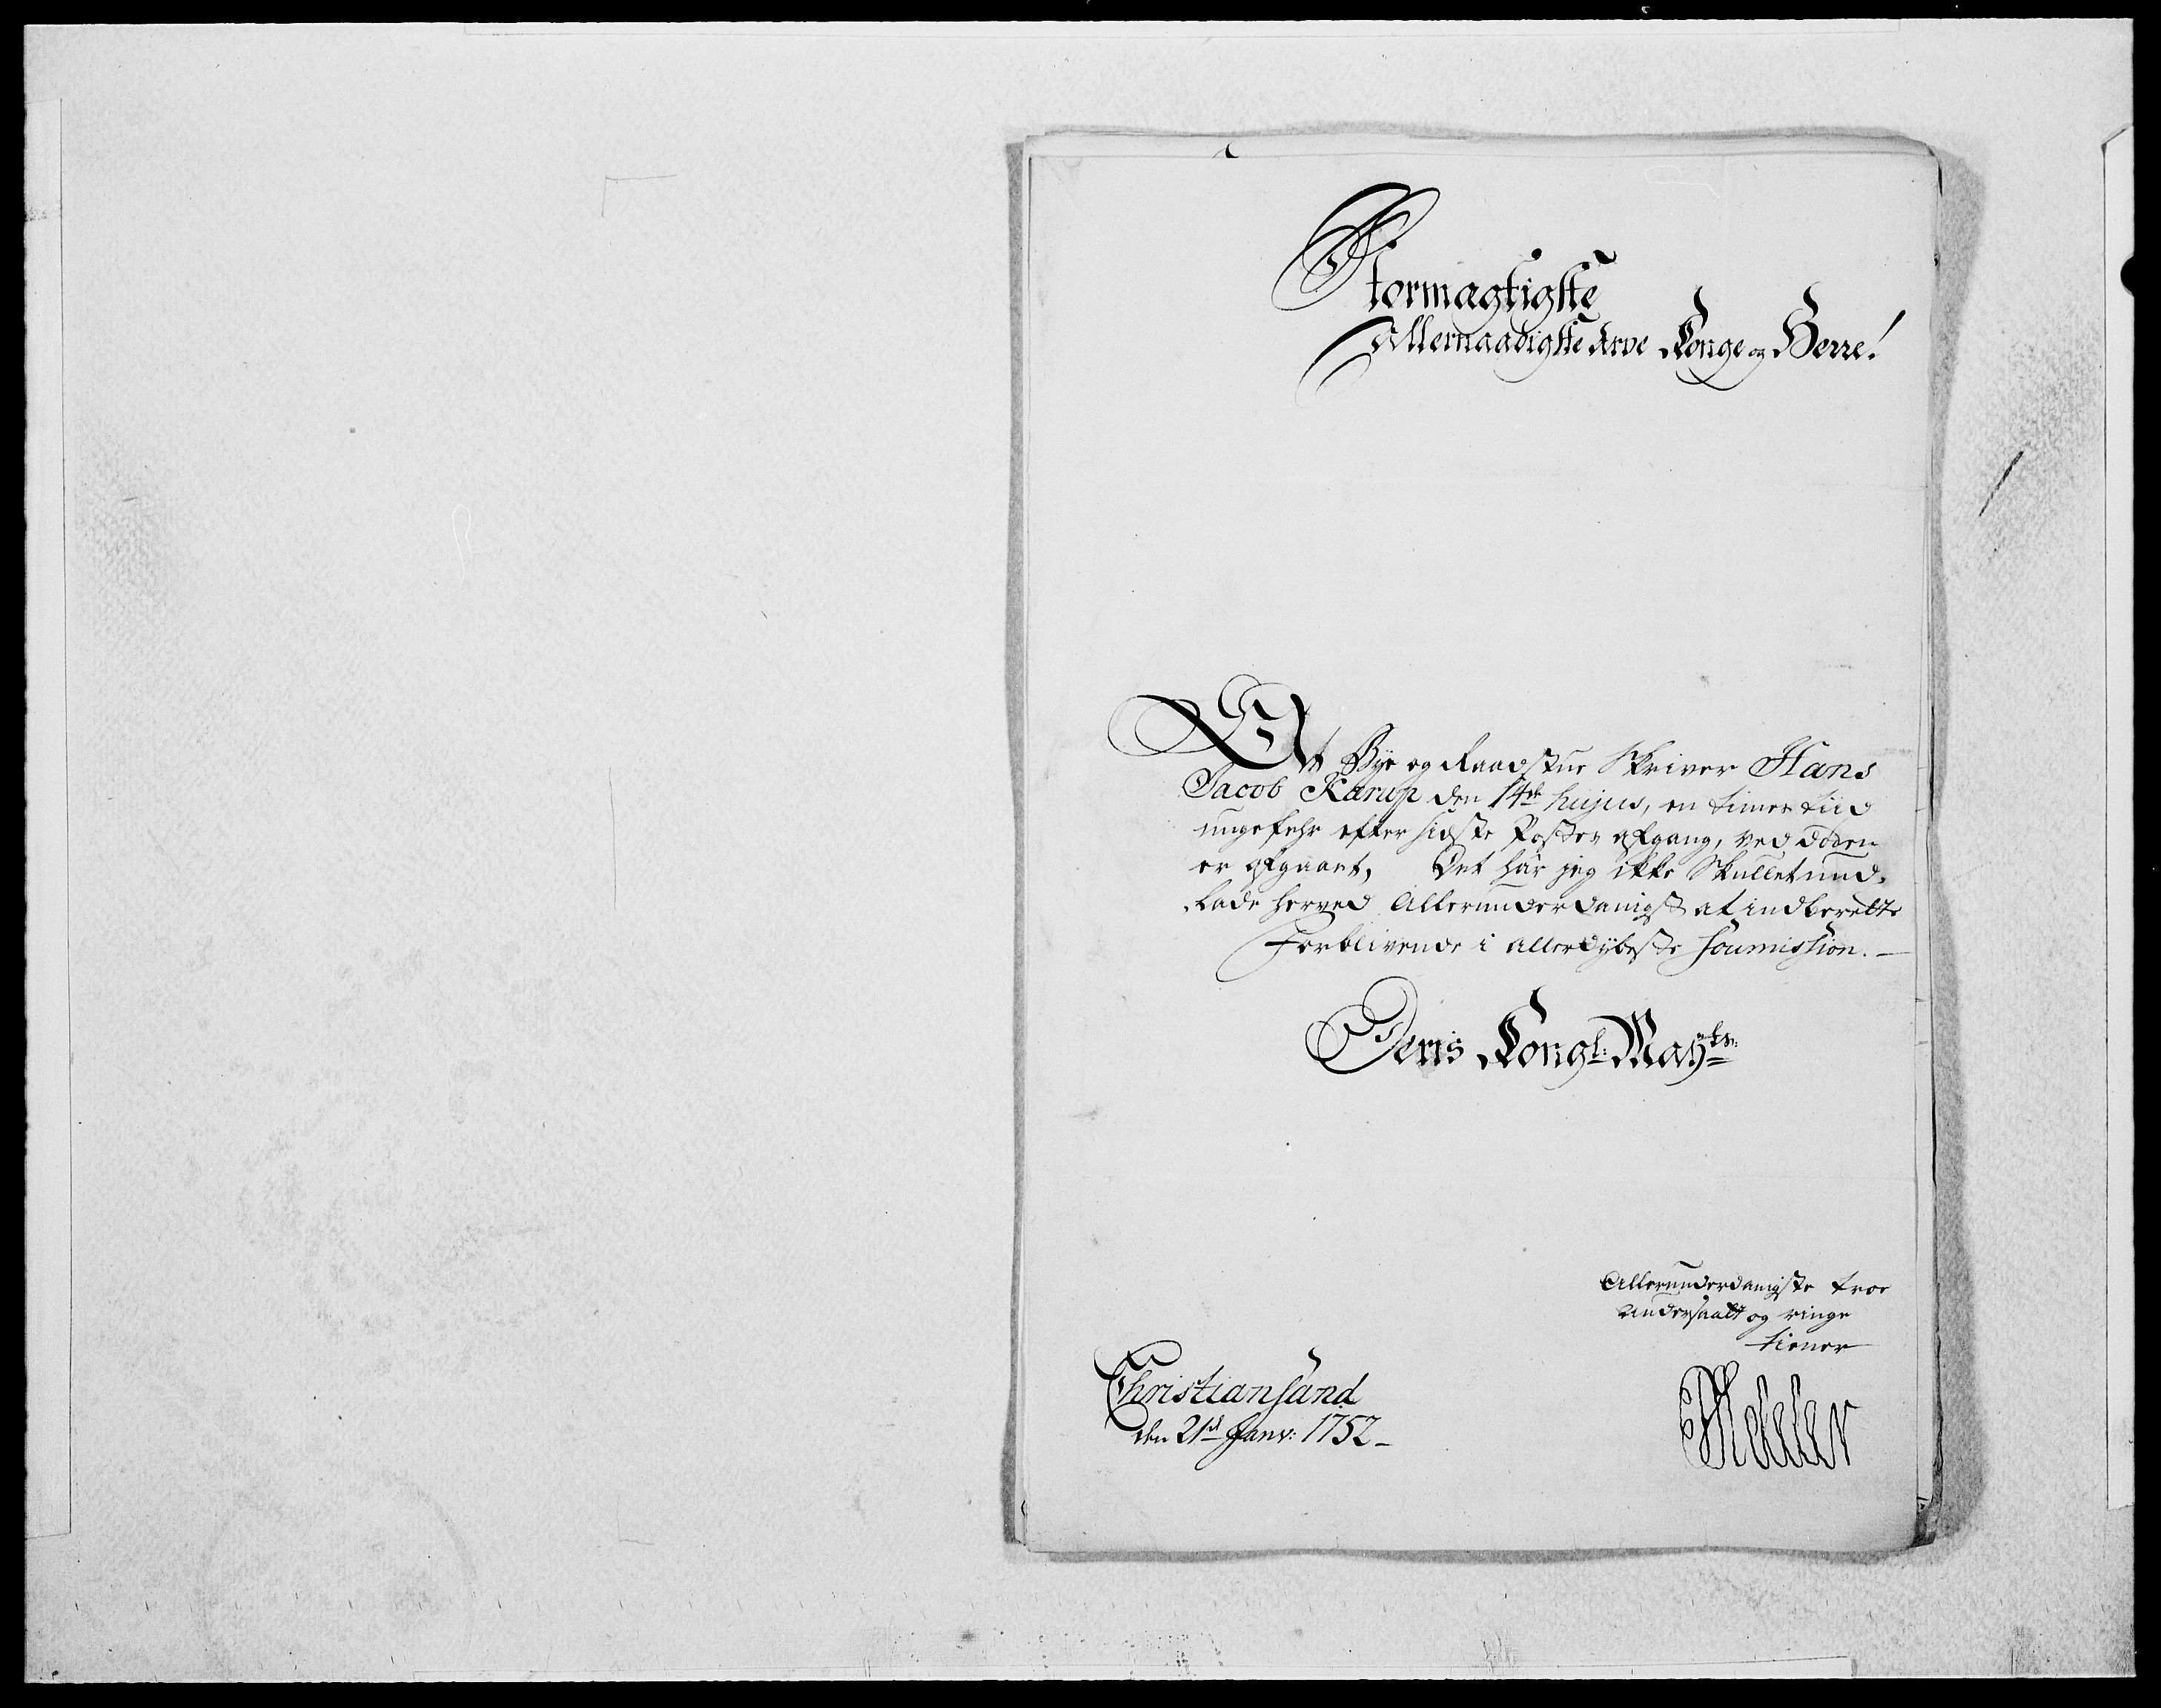 Stormægtigste
Allernaadigste Arve Konge og Herre!
At Bye og Raadstue Skriver Hans
Jacob Karup den 14de hujus, en times tiid
ungefehr efter sidste Postes afgang, ved døden
er afgaaet, Det har jeg ikke Skullet und-
lade herved Allerunderdanigst at indberette
Forblivende i allerdybeste soumission.
Deris Kongl: Mayts:
Allerunderdanigste troe
Undersaatt og ringe
tiener
Christiansand
den 21de Janv: 1752